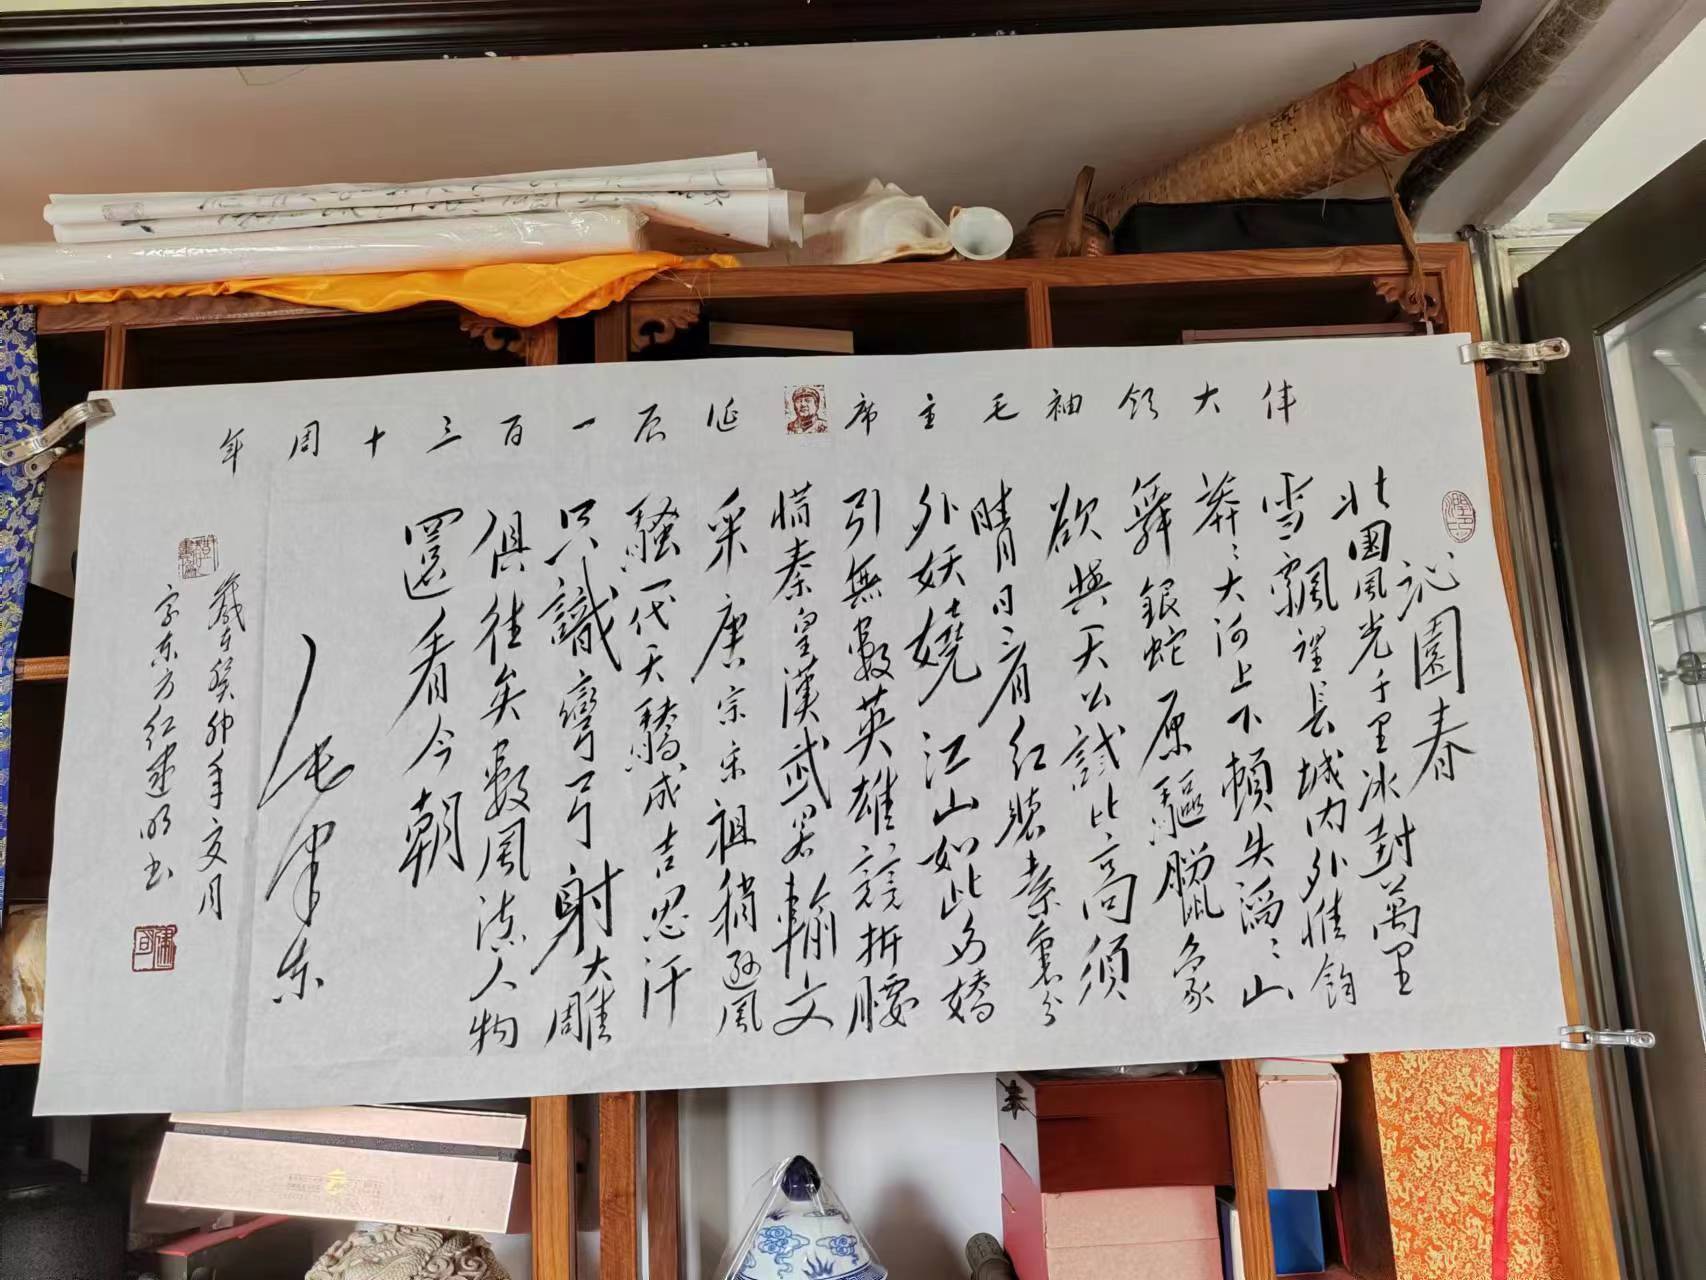 伟大领袖毛主席诞辰一百三十周年
沁園春
北國風光千里冰封萬里
雪飄望長城内外惟餘
莽〻大河上下頓失滔〻山
舞銀蛇原驅臘象
欲與天公試比高須
晴日看红裝素裹分
外妖嬈江山如此多嬌
引無數英雄競折腰
惜秦皇漢武畧輸文
采唐宗宋祖稍遜風
騷一代天驕成吉思汗
只識彎弓射大雕
俱往矣數風流人物
還看今朝
毛澤东
歲在癸卯年
家东方红建明书